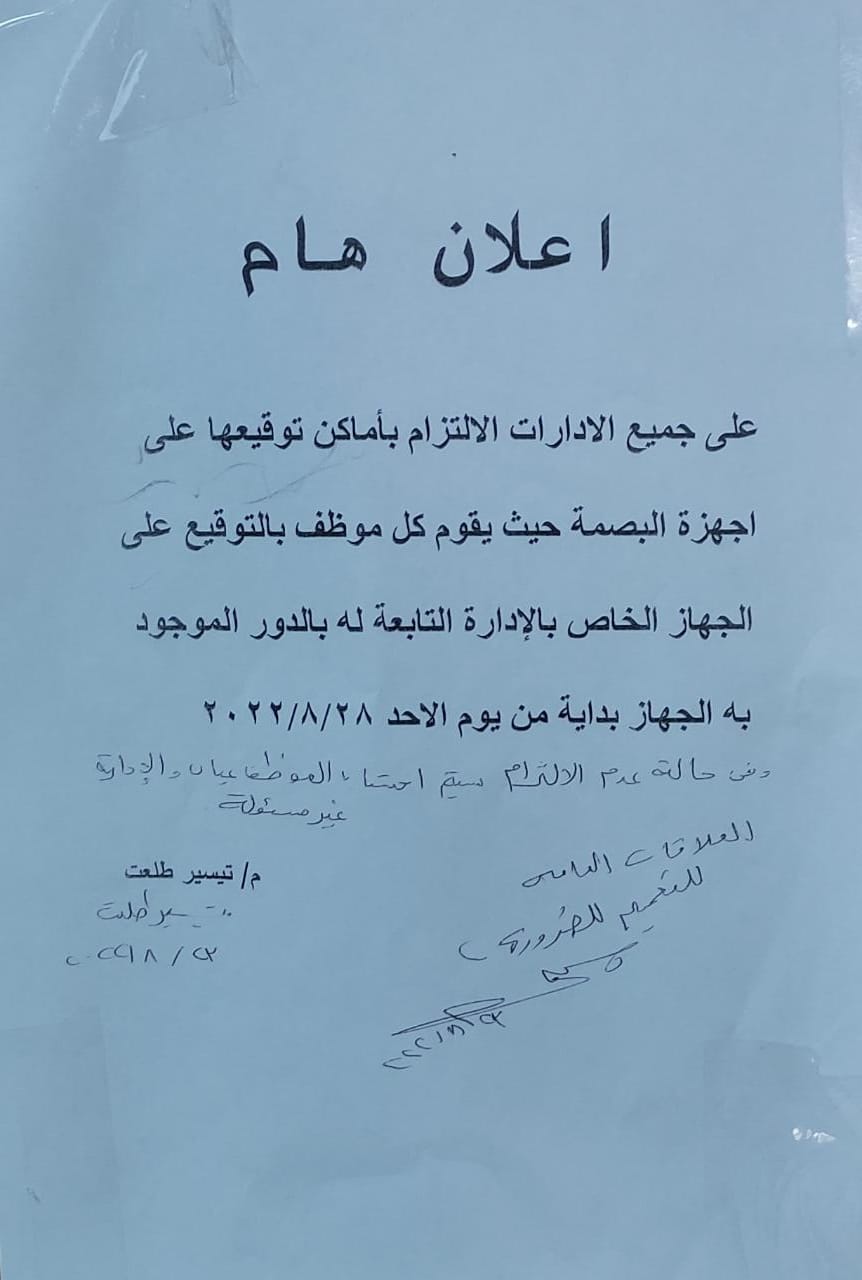 اعلان هام
على جميع الادارات الالتزام بأماكن توقيعها على
اجهزة البصمة حيث يقوم كل موظف بالتوقيع على
الجهاز الخاص بالإدارة التابعة له بالدور الموجود
به الجهاز بداية من يوم الاحد ٢٠٢٢/٨/٢٨
وفى حالة عدم الالتزام سيتم احتساب الموظف غياب والإدارة
غير مسئولة
العلاقات العامه
للتعميم للضرورة
م/ تيسير طلعت
تيسير طلعت